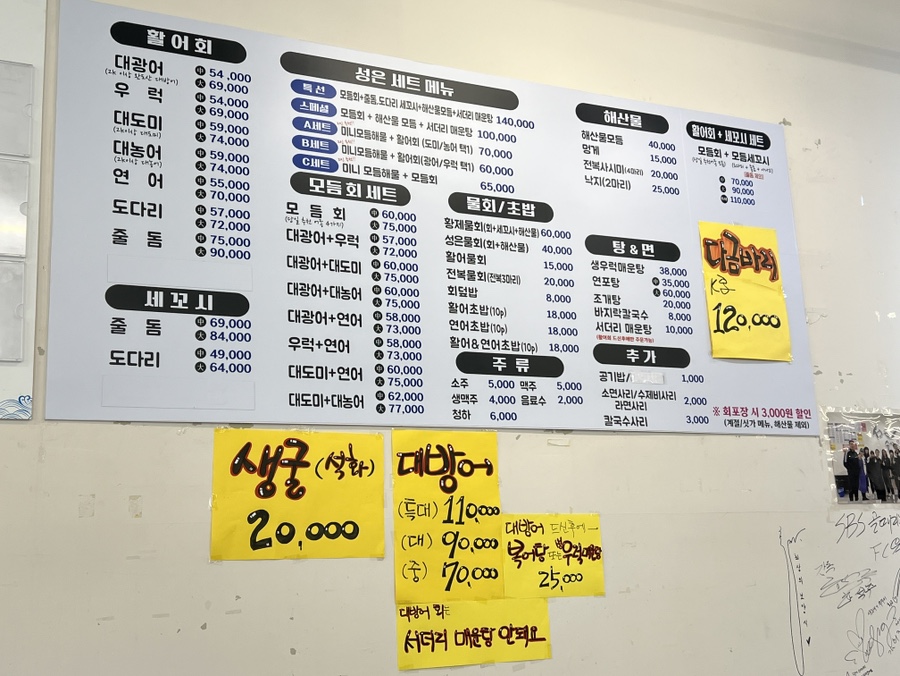 활어회
대광어 中 54,000
(2k이상 완도산 대방어) 大 69,000
우 럭 中 54,000
大 69,000
대도미 中 59,000
(2k이상 대도미) 大 74,000
대농어 中 59,000
(2k이상 대농어) 大 74,000
연 어 中 55,000
大 70,000
도다리 中 57,000
大 72,000
줄 돔 中 75,000
大 90,000
세꼬시
줄 돔 中 69,000
大 84,000
도다리 中 49,000
大 64,000
성은 세트 메뉴
특선 모듬회+줄돔,도다리 세꼬시+해산물모듬+서더리 매운탕 140,000
스페셜 모듬회 + 해산물 모듬 + 서더리 매운탕 100,000
A세트 미니모듬해물 + 활어회 (도미/농어 택1) 70,000
B세트 미니모듬해물 + 활어회(광어/우럭 택1) 60,000
C세트 미니 모듬해물 + 모듬회 65,000
모듬회 세트
모 듬 회 中 60,000
大 75,000
대광어+우럭 中 57,000
大 72,000
대광어+대도미 中 60,000
大 75,000
대광어+대농어 中 60,000
大 75,000
대광어+연어 中 58,000
大 73,000
우럭+연어 中 58,000
大 73,000
대도미+연어 中 60,000
大 75,000
대도미+대농어 中 62,000
大 77,000
물회/초밥
황제물회(회+세꼬시+해산물) 60,000
성은물회(회+해산물) 40,000
활어물회 15,000
전복물회(전복3마리) 20,000
회덮밥 8,000
활어초밥(10p) 18,000
연어초밥(10p) 18,000
활어&연어초밥(10p) 18,000
주 류
소주 5,000 맥주 5,000
생맥주 4,000 음료수 2,000
청하 6,000
해산물
해산물모듬 40,000
멍게 15,000
전복사시미(4마리) 20,000
낙지(2마리) 25,000
탕&면
생우럭매운탕 38,000
연포탕 中 35,000
大 60,000
조개탕 20,000
바지락칼국수 8,000
서더리 매운탕 10,000
(활어회 드신후에만 주문가능)
추 가
공기밥/ 1,000
소면사리/수제비사리
라면사리 2,000
칼국수사리 3,000
활어회 + 세꼬시 세트
모듬회 + 모듬세꼬시
70,000
90,000
110,000
※ 회포장 시 3,000원 할인
(계절/싯가 메뉴, 해산물 제외)
다금바리
120,000
생굴 (석화)
20,000
대방어
(특대) 110,000
(대) 90,000
(중) 70,000
대방어 드신후에
복어탕 또는 우럭매운탕
25,000
대방어 회는
서더리 매운탕 안돼요
SBS 골때리
FC